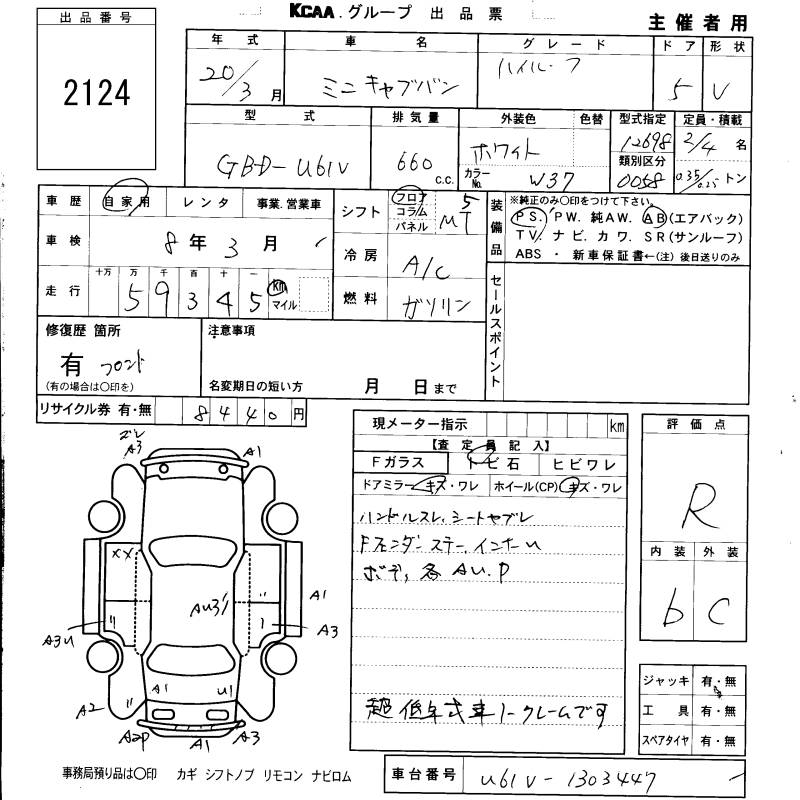 KCAA.グループ 出品票
主催者用
出品番号
2124
年式 車名 グレード ドア 形状
20/3月 ミニキャブバン ハイルーフ 5 V
型式 排気量 外装色 色替 型式指定 定員・積載
GBD-U61V 660 c.c. ホワイト 12698 2/4名
カラーNo. W37 類別区分 0058 0.35/0.25トン
車歴 自家用 レンタ 事業.営業車
車検 8年3月
走行 十万 万 千 百 十 一
5 9 3 4 5 km マイル
シフト フロア コラム パネル 5 MT
冷房 A/C
燃料 ガソリン
装備品
※純正のみ○印をつけて下さい。
PS. PW. 純AW. AB(エアバック)
TV. ナビ. カワ. SR(サンルーフ)
ABS ・ 新車保証書←(注) 後日送りのみ
セールスポイント
修復歴 箇所
有 フロント
(有の場合は○印を)
注意事項
名変期日の短い方 月 日まで
リサイクル券 有・無 8440円
現メーター指示 km
【査定員記入】
Fガラス トビ石 ヒビワレ
ドアミラー キズ・ワレ ホイール(CP) キズ・ワレ
ハンドルスレ、シートヤブレ
Fフェンダーステー、インナーU
ボデ,各AU.P
超低年式車ノークレームです
評価点
R
内装 外装
b C
ジャッキ 有・無
工具 有・無
スペアタイヤ 有・無
A3 A1
XX
AU3
A1
A3U A3
A1 U1
A2
A2P A1 A3
事務局預り品は○印 カギ シフトノブ リモコン ナビロム
車台番号 U61V-1303447